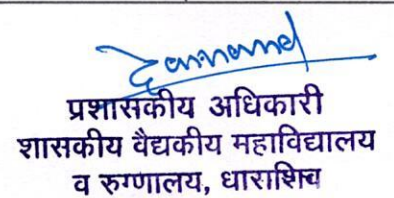 प्रशासकीय अधिकारी
शासकीय वैद्यकीय महाविद्यालय
व रुग्णालय, धाराशिव